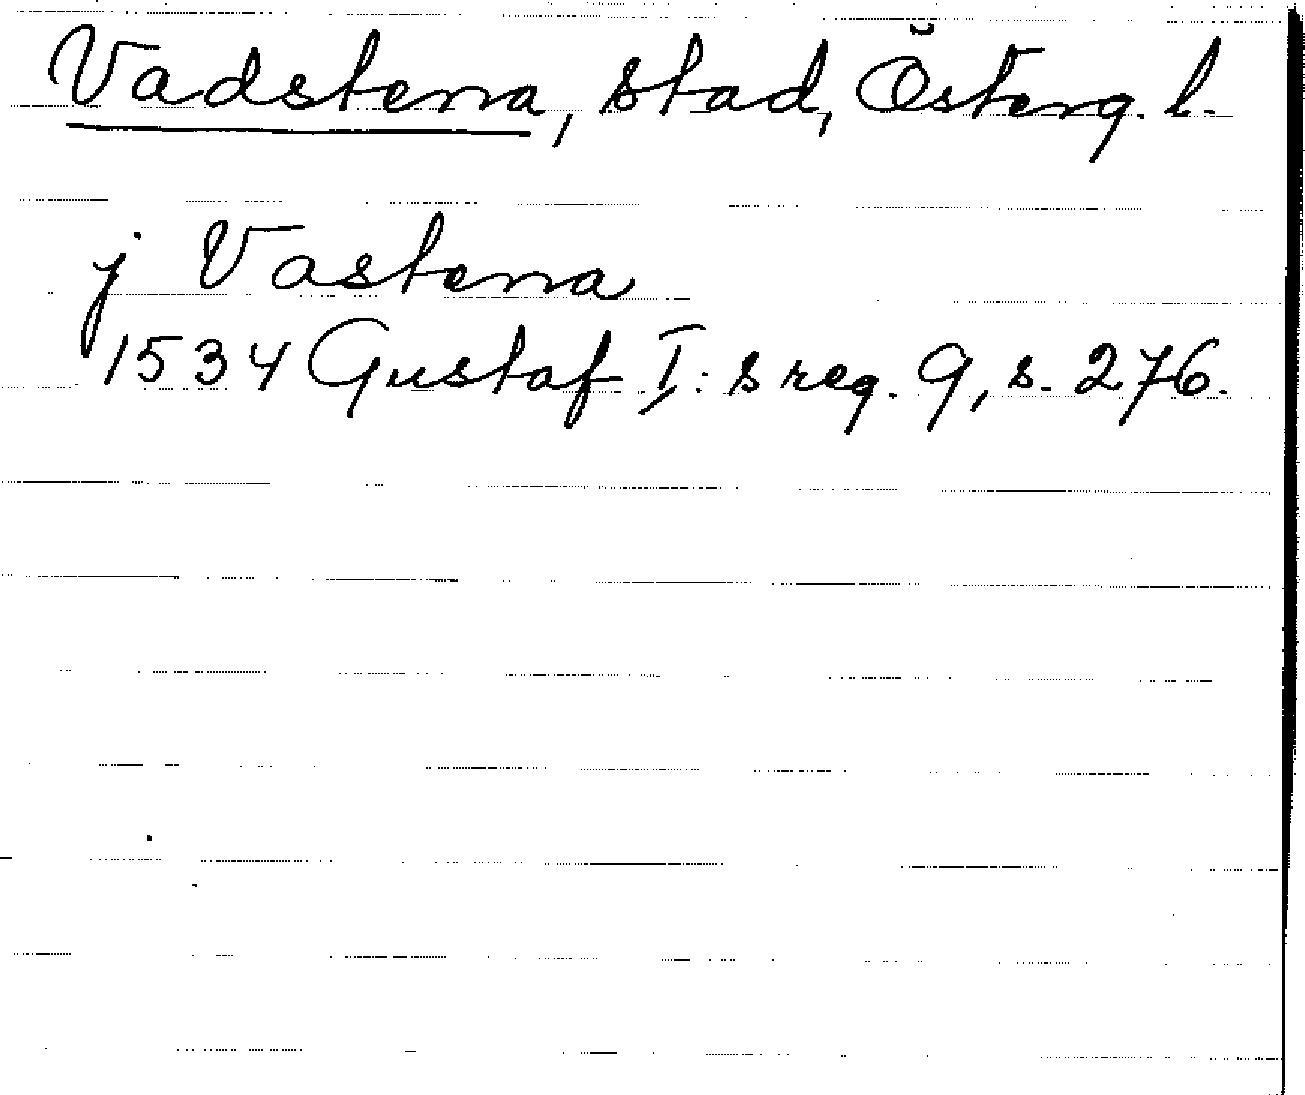 Vadstena, stad, Österg. l.
j Vastena
1534 Gustaf I:s reg. 9, s. 276.